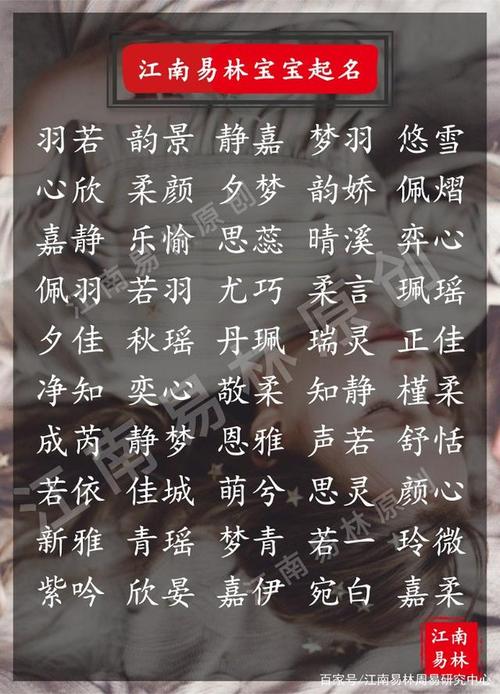 江南易林宝宝起名
羽若 韵景 静嘉 梦羽 悠雪
心欣 柔颜 夕梦 韵娇 佩熠
嘉静 乐愉 思蕊 晴溪 弈心
佩羽 若羽 尤巧 柔言 珮瑶
夕佳 秋瑶 丹珮 瑞灵 正佳
净知 奕心 敬柔 知静 槿柔
成芮 静梦 恩雅 声若 舒恬
若依 佳城 萌兮 思灵 颜心
新雅 青瑶 梦青 若一 玲微
紫吟 欣晏 嘉伊 宛白 嘉柔
江南易林原创
江南易林原创
江南易林原创
江南
易林
百家号/江南易林周易研究中心